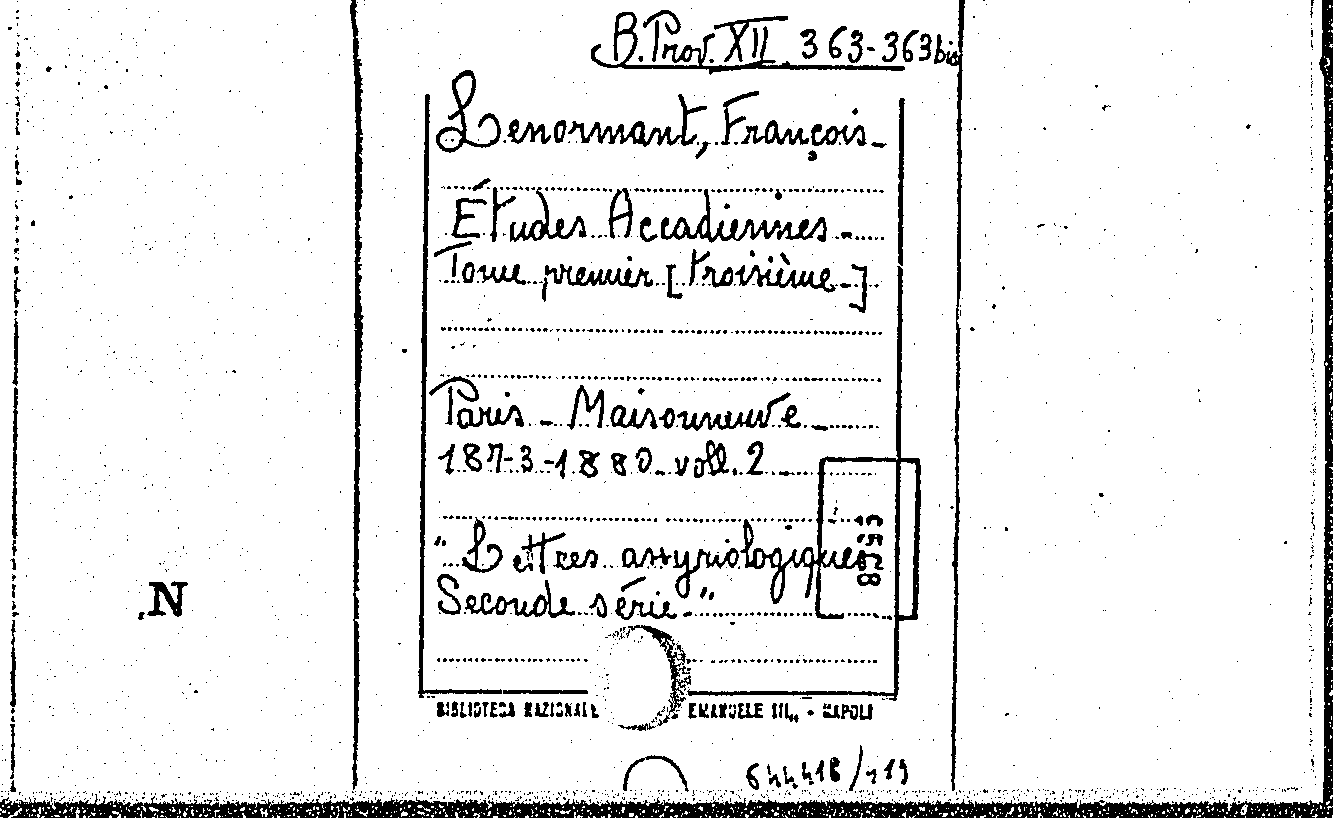 B. Prov. XII 363-363 bis
Lenormant, François-
Études Accadiennes-
Tome premier [troisième-]
Paris - Maisonneuve -
1873-1880- voll. 2
"Lettres assyriologiques
Seconde série-"
N
BIBLIOTECA NAZIONALE EMANUELE III,, - NAPOLI